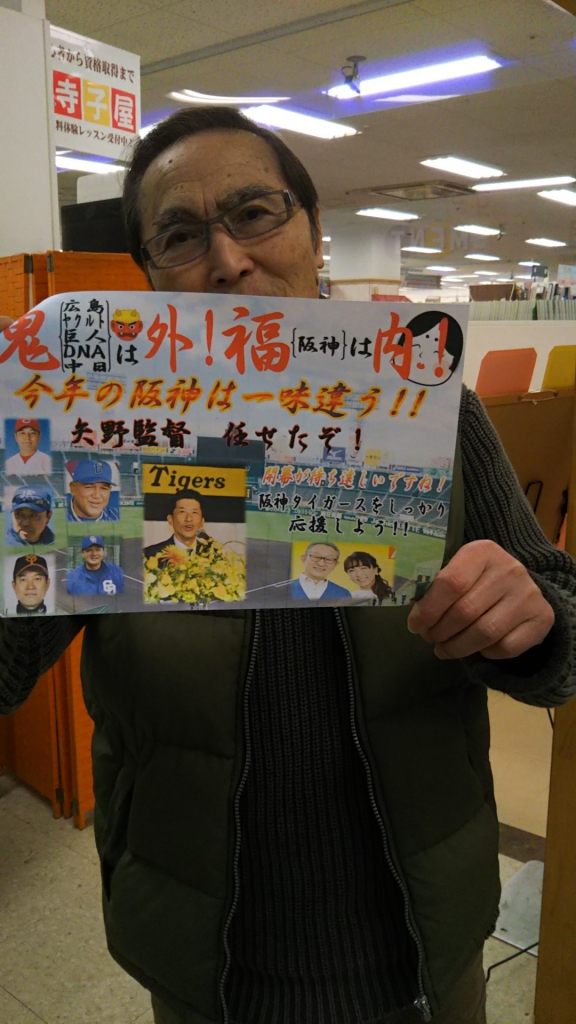 から資格取得まで
寺子屋
料体験レッスン受付中
鬼{広島 ヤクルト 巨人 DNA 中日}は外!福{阪神}は内!!
今年の阪神は一味違う!!
矢野監督 任せたぞ!
Tigers
開幕が待ち遠しいですね!
阪神タイガースをしっかり
応援しよう!!